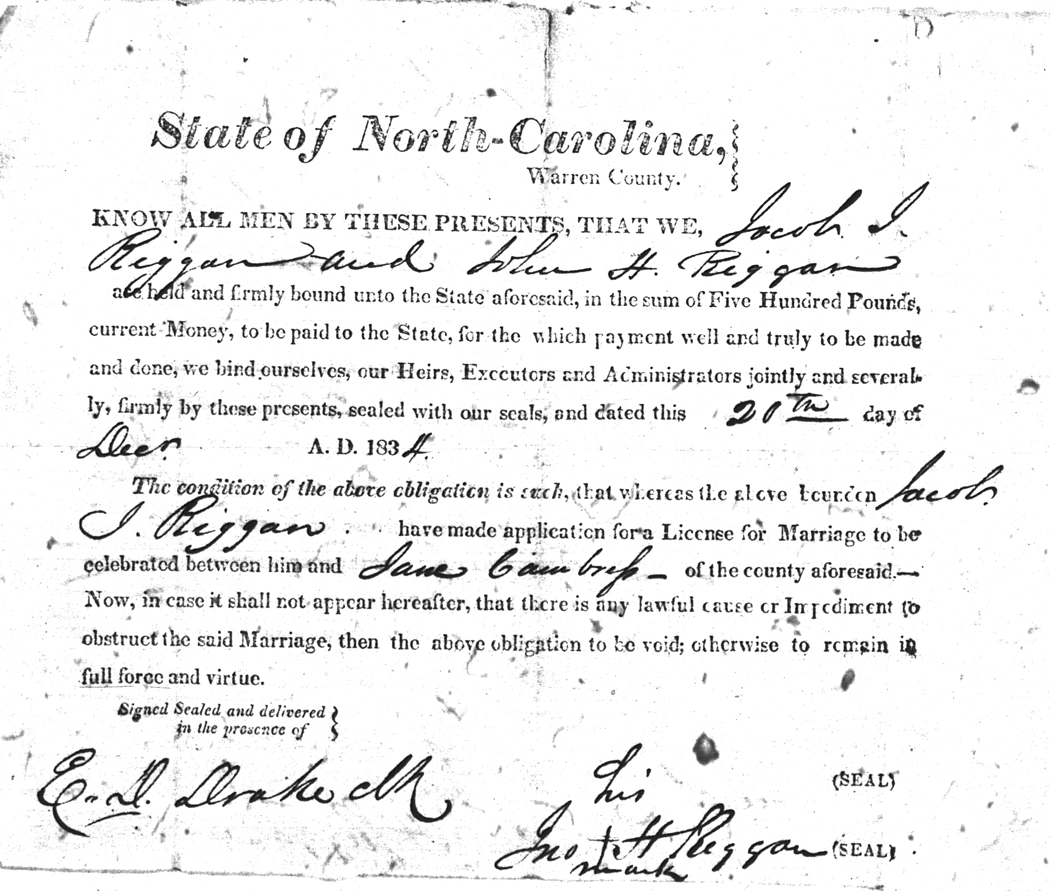 State of North-Carolina,
Warren County.
KNOW ALL MEN BY THESE PRESENTS, THAT WE, Jacob I.
Riggan and John H. Riggan
are held and firmly bound unto the State aforesaid, in the sum of Five Hundred Pounds,
current Money, to be paid to the State, for the which payment well and truly to be made
and done, we bind ourselves, our Heirs, Executors and Administrators jointly and several-
ly, firmly by these presents, sealed with our seals, and dated this 20th day of
Decr A. D. 1834.
The condition of the above obligation is such, that whereas the above bounden Jacob
I. Riggan have made application for a License for Marriage to be
celebrated between him and Jane of the county aforesaid.—
Now, in case it shall not appear hereafter, that there is any lawful cause or Impediment to
obstruct the said Marriage, then the above obligation to be void; otherwise to remain in
full force and virtue.
Signed Sealed and delivered
in the presence of
E. D. Drake clk
his (SEAL)
Jno + H Riggan (SEAL)
mark